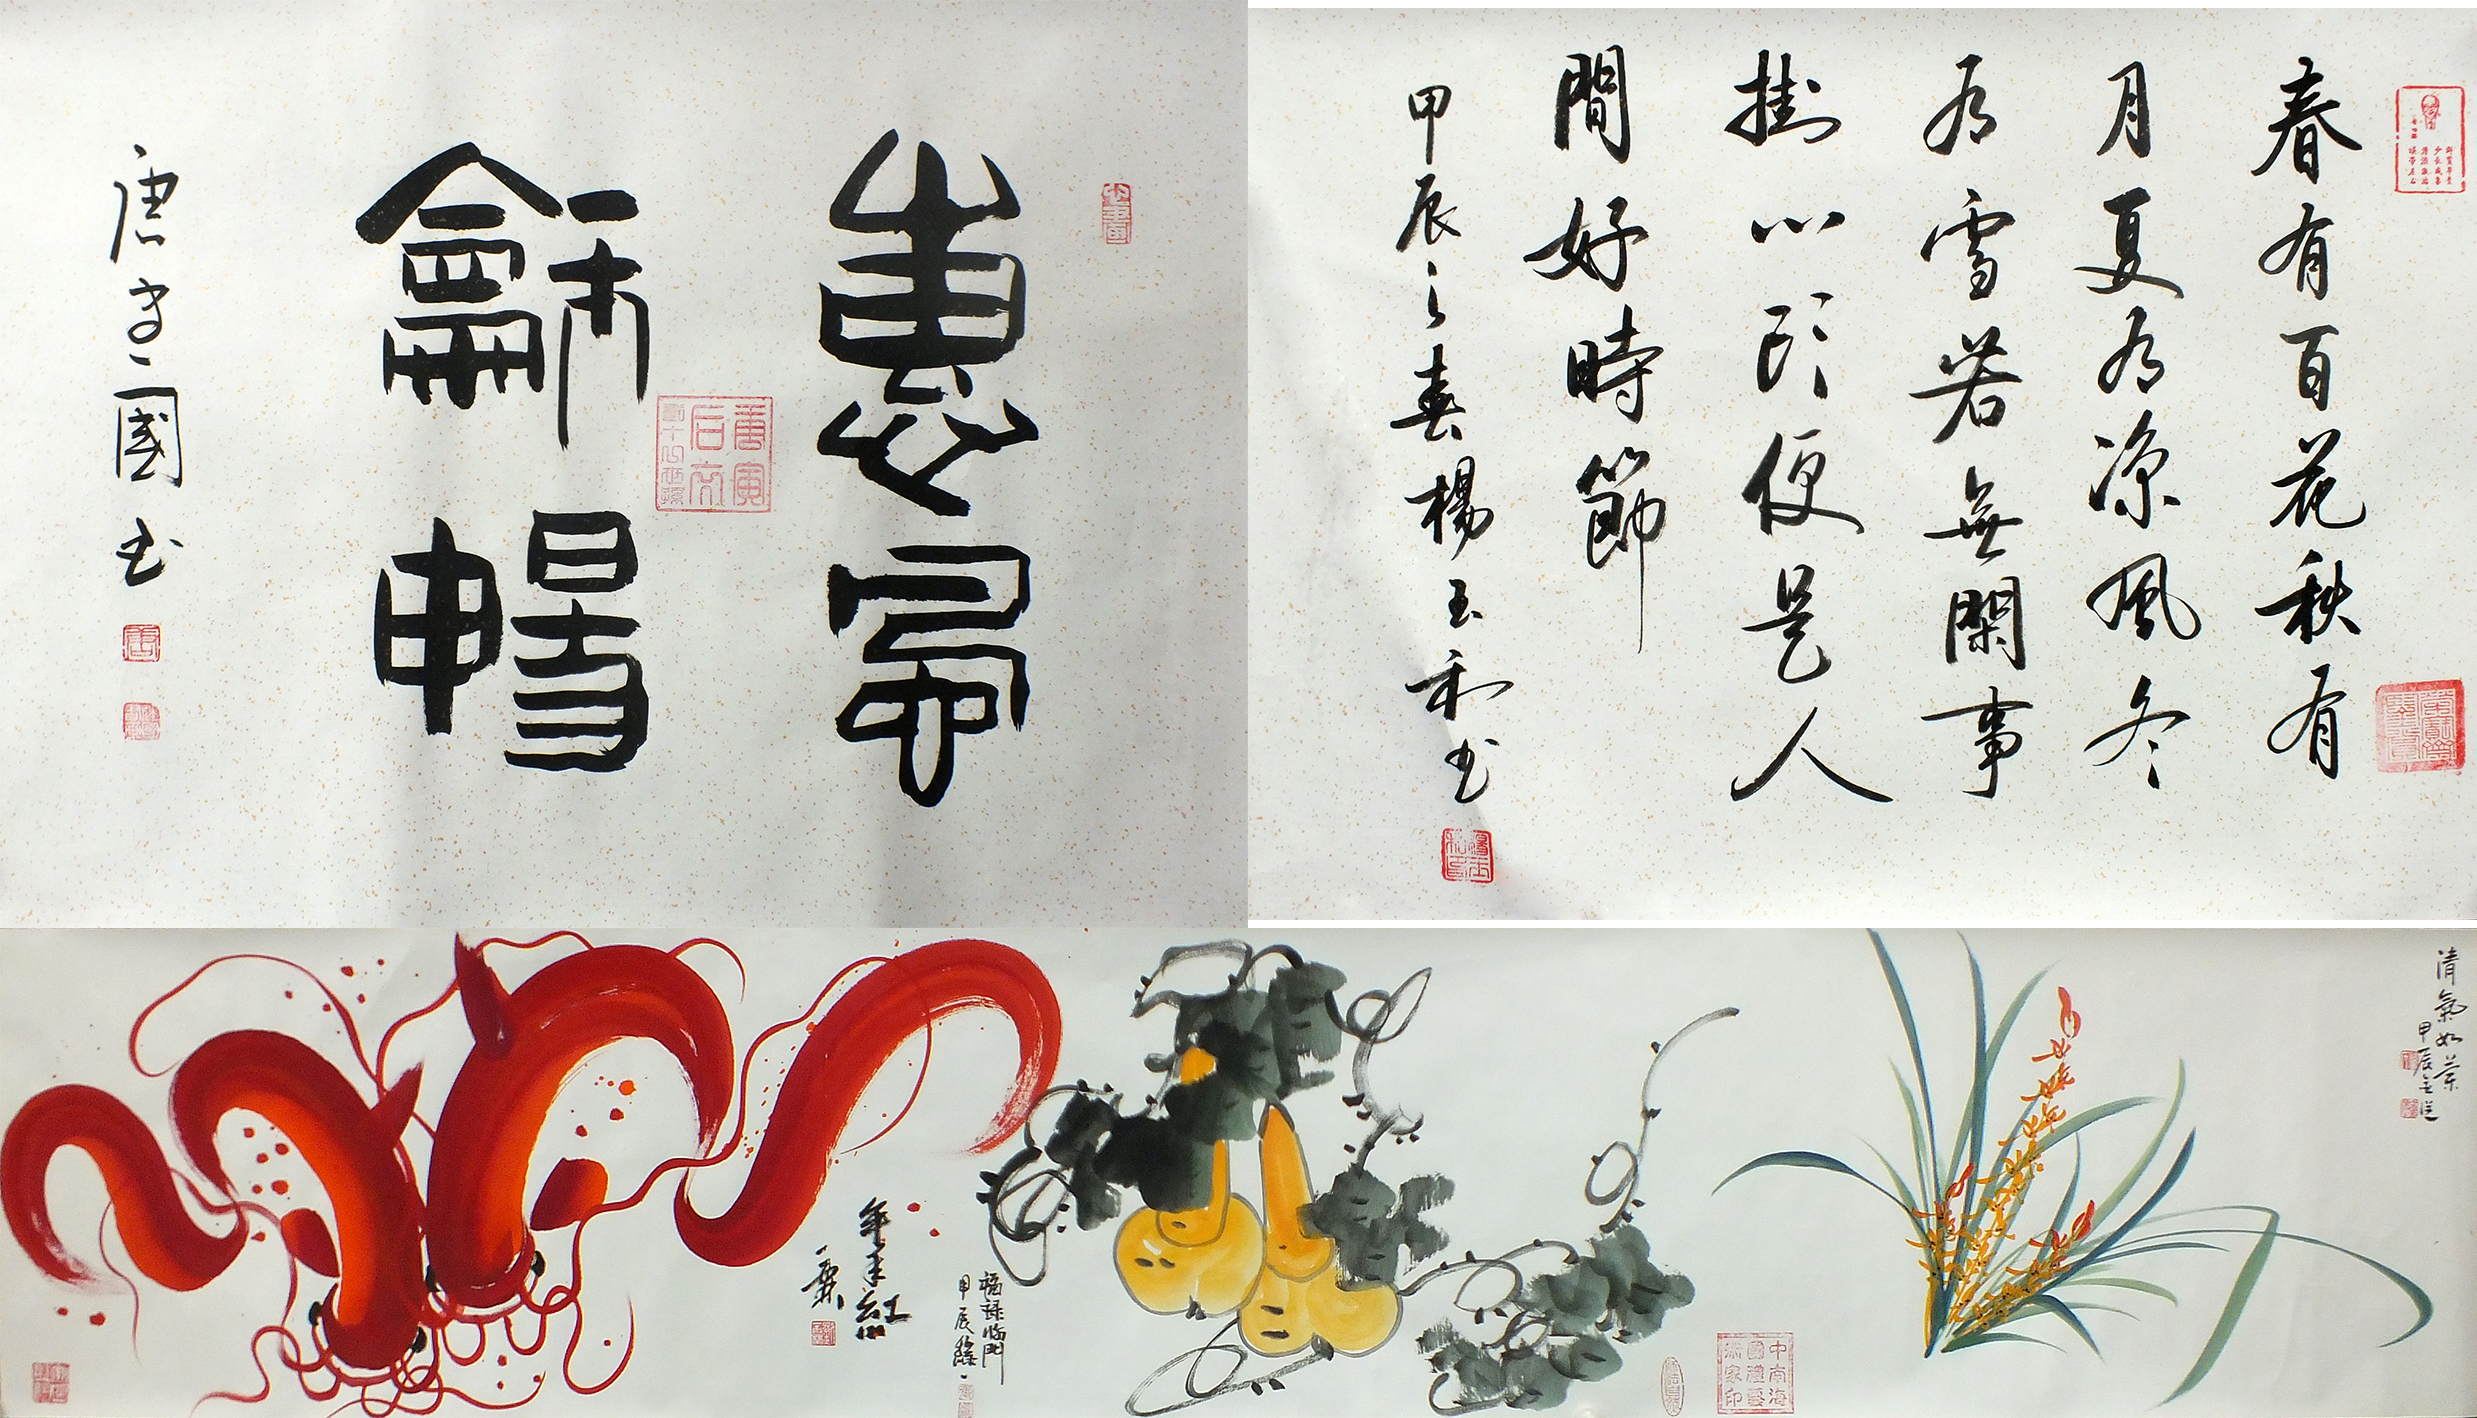 惠風
龢暢
唐守國書
春有百花秋有
月夏有凉風冬
有雪若無閑事
掛心頭便是人
間好時節
甲辰之春楊玉和書
清氣如蘭
甲辰
福祿臨門
甲辰
年年紅
中南海
國禮藝
术家印
唐寅
后裔